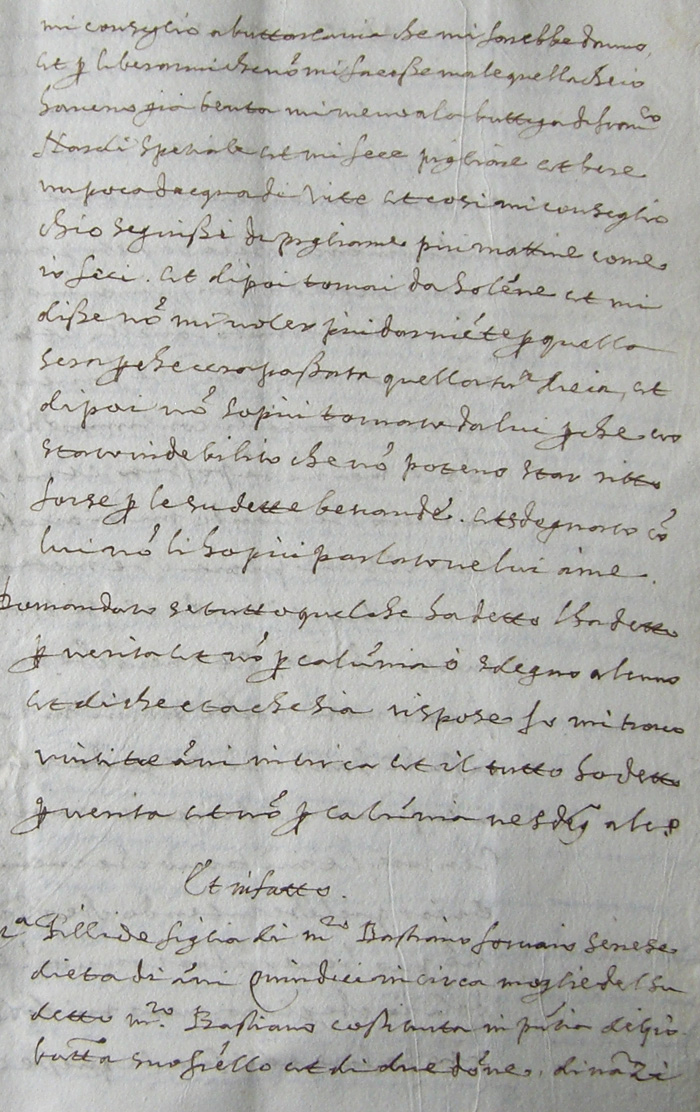 mi consiglio a buttarla via che mi farebbe danno,
et p liberarmi che nō mi facesse male quella che io
havevo già beuta mi meno a la buttega di Franco
Nardi spetiale et mi fece pigliare et bere
un poca d acqua di vite et cosi mi consiglio
ch io seguissi di pigliarne piu mattine come
io feci. et di poi tornai da Solēne et mi
disse nō mi voler piu dar niēte p quella
sera p che era passata quella luna,  et
di poi nō so piu tornato da lui p che ero
stato indebilito che nō potevo star ritto
forse p le sudette bevande. et sdegnato cō
lui nō li ho piu parlato ne lui a me.
Domandato se tutto quel che ha detto l ha detto
p verita et nō p calūnia o sdegno alcuno
et di che eta che sia rispose Io mi trovo
vintitre āni in circa et il tutto ho detto
p verita et nō p calūnia ne sdeg alc
Et in fatto.
Fillide figlia di mro Bastiano fornaio senese
di eta di āni quindici in circa moglie del su
detto mro Bastiano costituta in di Gio
batta suo frēllo et di due dōne. dināzi